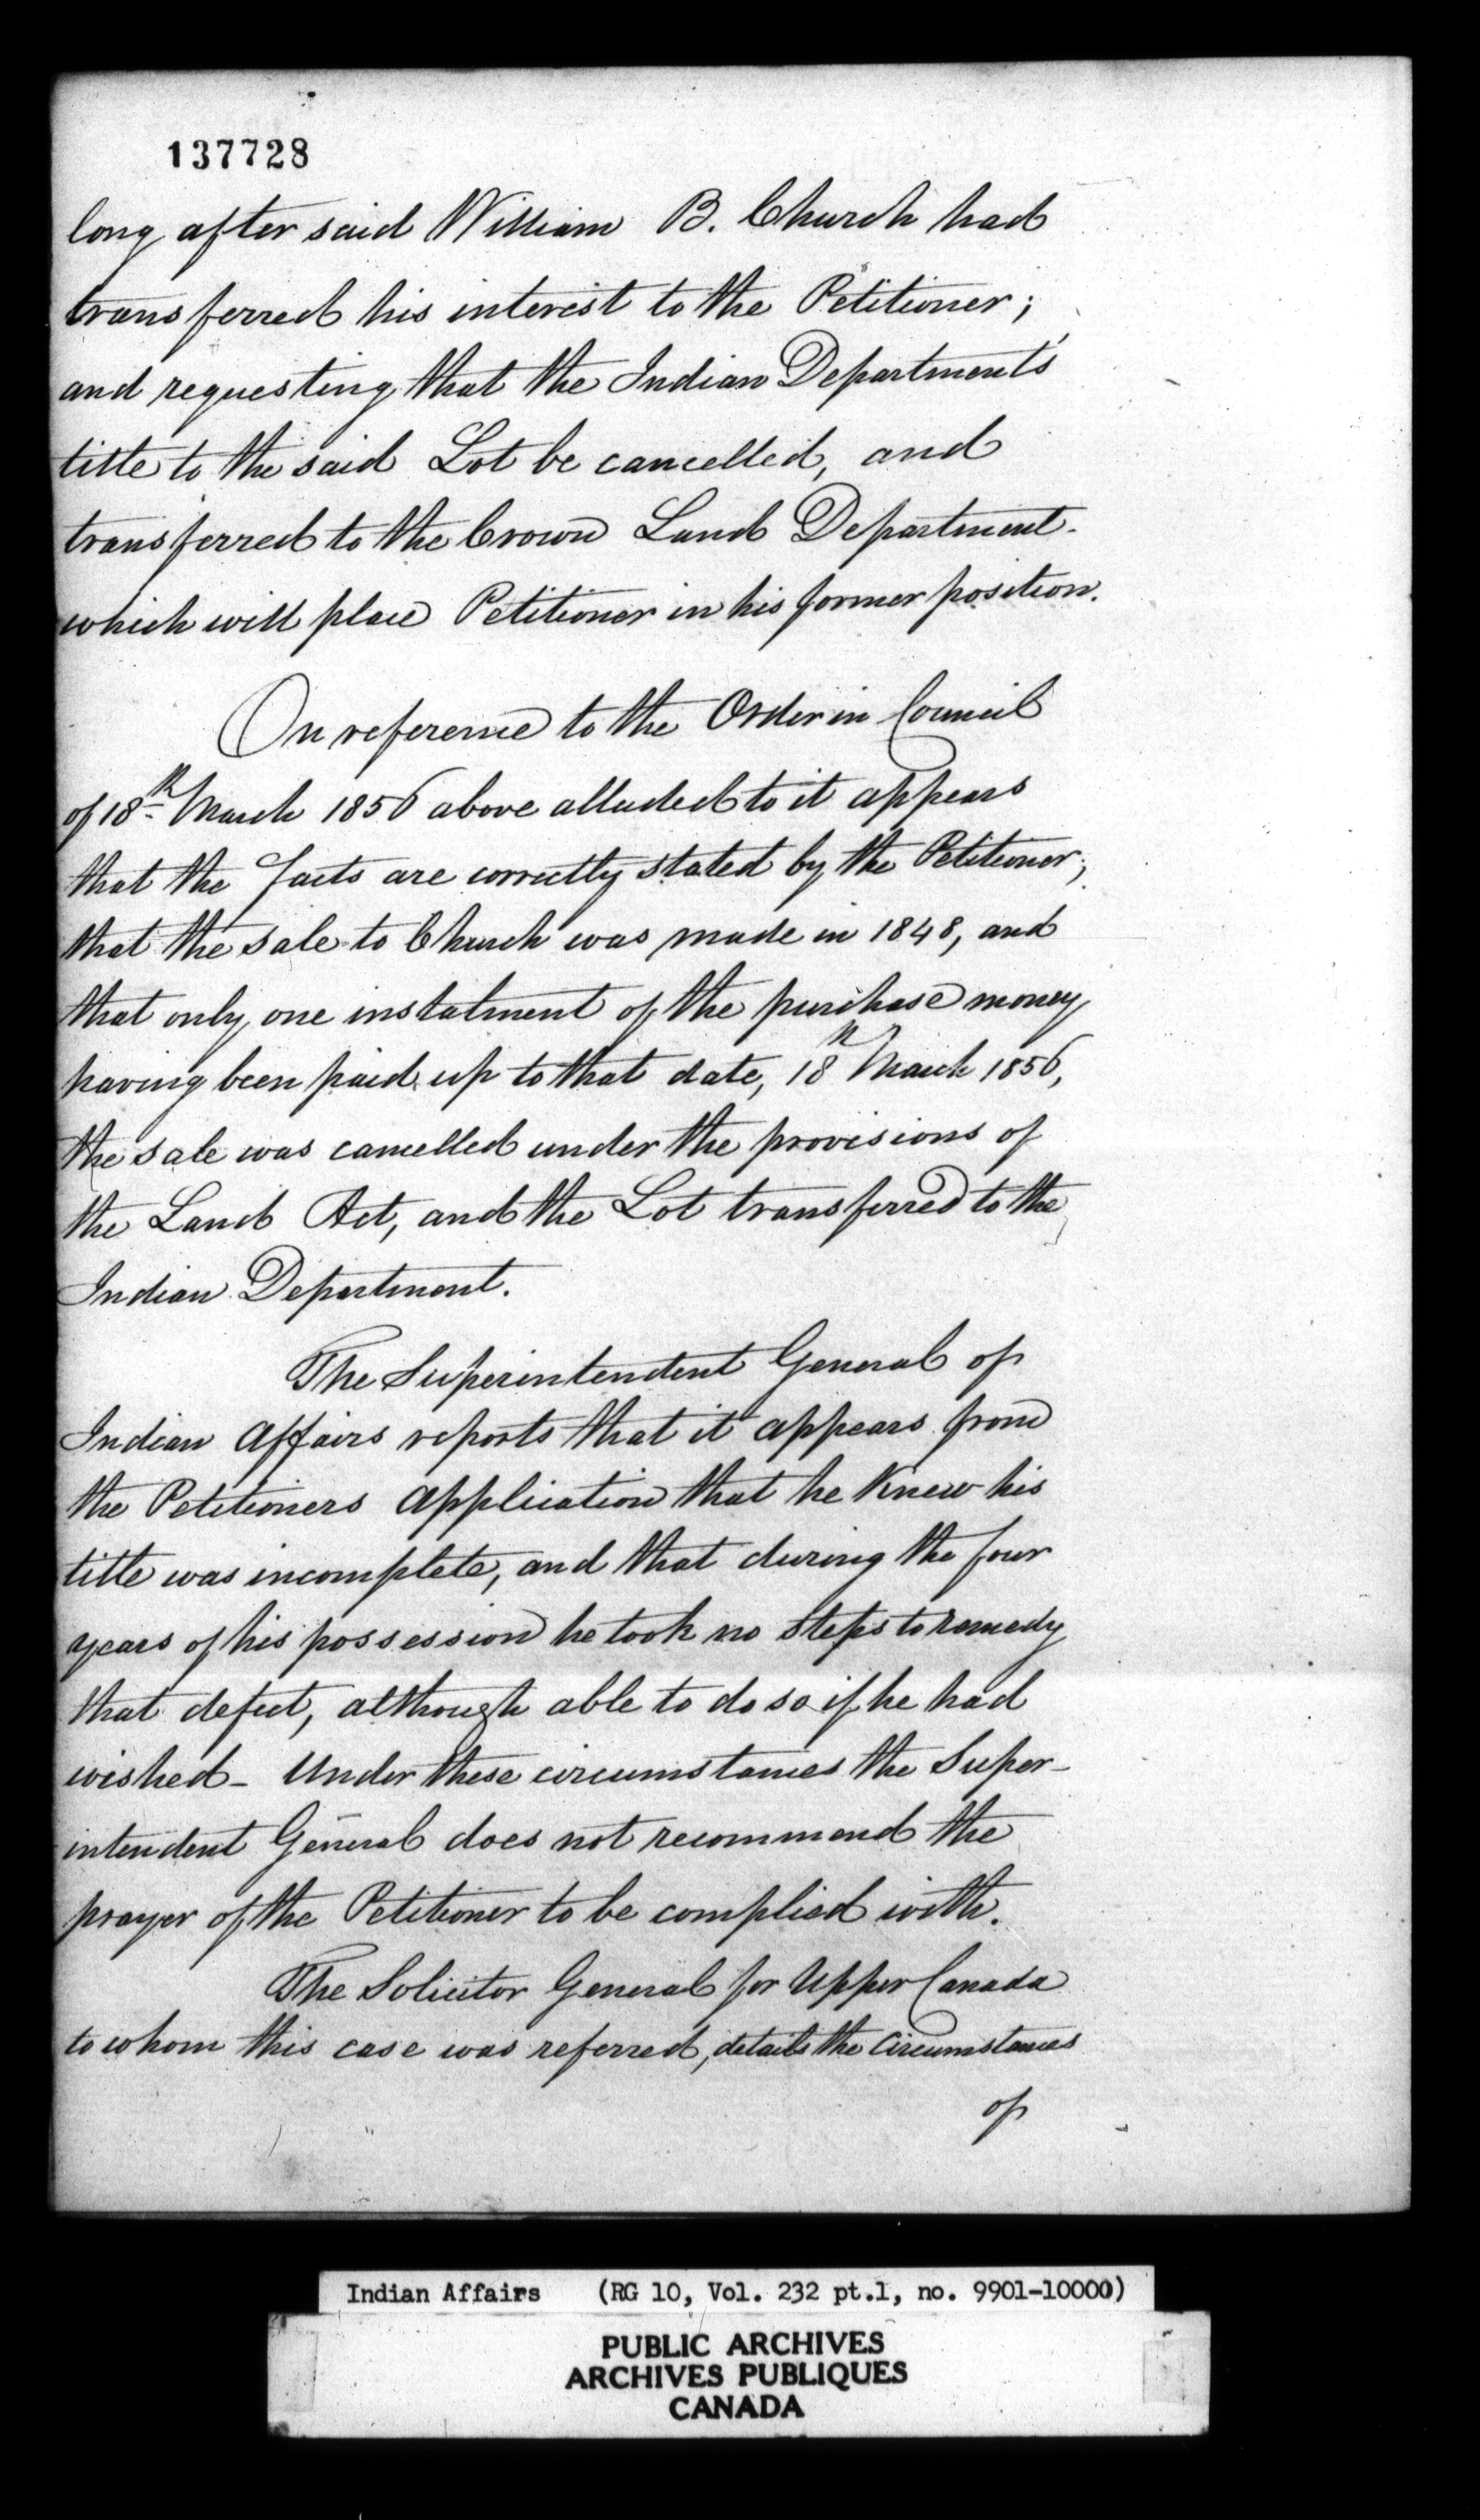 137728
long after said William B. Church had
transferred his interest to the Petitioner;
and requesting that the Indian Department's
title to the said Lot be cancelled, and
transferred to the Crown Land Department-
which will place Petitioner in his former position.
On reference to the Order in Council
of 18th March 1856 above alluded to it appears
that the facts are correctly stated by the Petitioner;
that the sale to Church was made in 1848, and
that only one instalment of the purchase money
having been paid up to that date, 18th March 1856,
the sale was cancelled under the provisions of
the Land Act, and the Lot transferred to the
Indian Department.
The Superintendent General of
Indian Affairs reports that it appears from
the Petitioners application that he knew his
title was incomplete, and that during the four
years of his possession he took no steps to remedy
that defect, although able to do so if he had
wished - Under these circumstances the Super-
intendent General does not recommend the
prayer of the Petitioner to be complied with.
The Solicitor General for Upper Canada
to whom this case was referred, details the circumstances
of
Indian Affairs (RG 10, Vol. 232 pt.1, no. 9901-10000)
PUBLIC ARCHIVES
ARCHIVES PUBLIQUES
CANADA